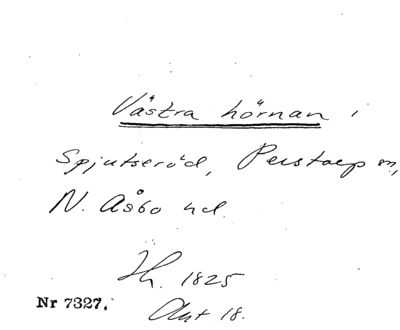 Västra hörnan i
Spjutseröd, Perstorp sn,
N. Åsbo hd.
Th. 1825
Akt 18.
Nr 7327.